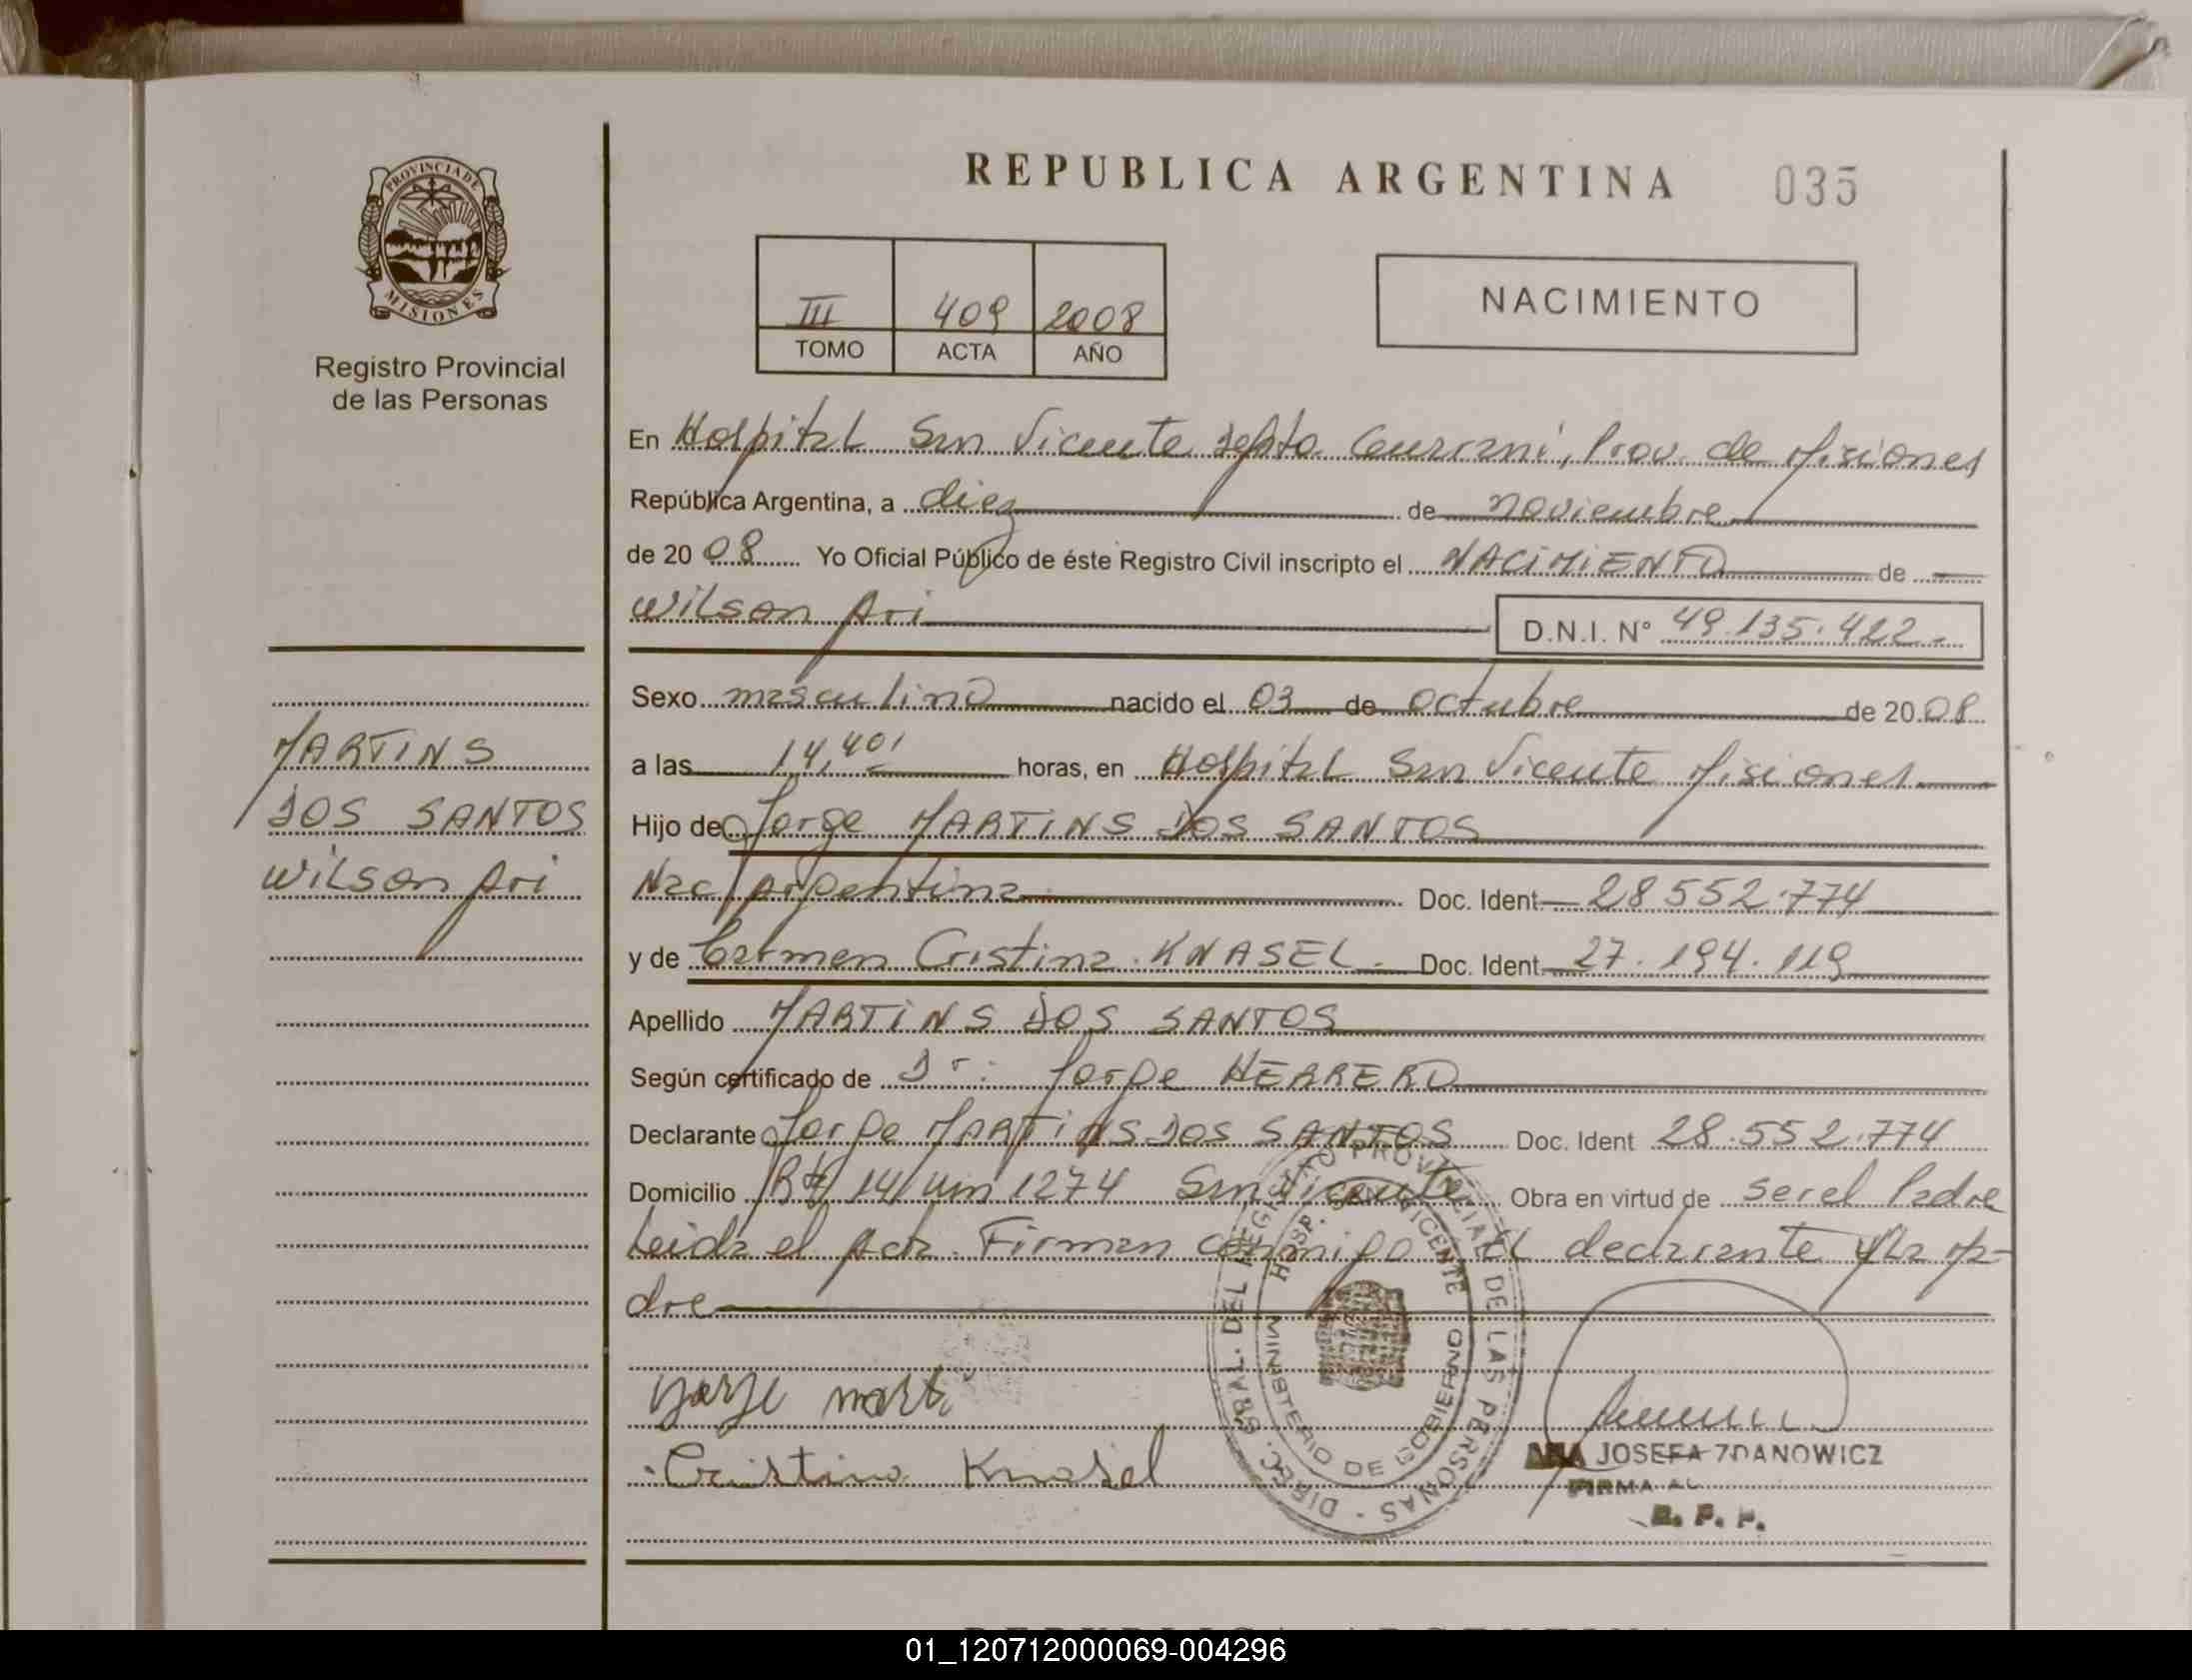 REPUBLICA ARGENTINA 035
PROVINCIA DE
MISIONES
Registro Provincial
de las Personas
III 409 2008
TOMO ACTA AÑO
NACIMIENTO
En Hospital San Vicente Depto Guarani, Prov. de Misiones
República Argentina, a diez de noviembre
de 20 08 Yo Oficial Público de éste Registro Civil inscripto el NACIMIENTO de
Wilson Ari D.N.I. Nº 49.135.422.-
Sexo masculino nacido el 03 de octubre de 20 08
a las 14,40' horas, en Hospital San Vicente Misiones
Hijo de Jorge MARTINS DOS SANTOS
Nac Argentina Doc. Ident 28552.774
y de Carmen Cristina KNASEL. Doc. Ident 27.194.119
Apellido MARTINS DOS SANTOS
Según certificado de Dr: Jorge HERRERO
Declarante Jorge MARTINS DOS SANTOS Doc. Ident 28.552.774
Domicilio Rta 14 Km 1274 San Vicente Obra en virtud de ser el Padre
Leida el Acta Firman conmigo El declarante y la Ma-
dre
MARTINS
DOS SANTOS
Wilson Ari
Jorge marti
Cristina Knasel
DIREC. GRAL. DEL REGISTRO PROVINCIAL DE LAS PERSONAS
HOSP. SAN VICENTE
MINISTERIO DE GOBIERNO
ANA JOSEFA ZDANOWICZ
FIRMA
R. P. P.
01_120712000069-004296